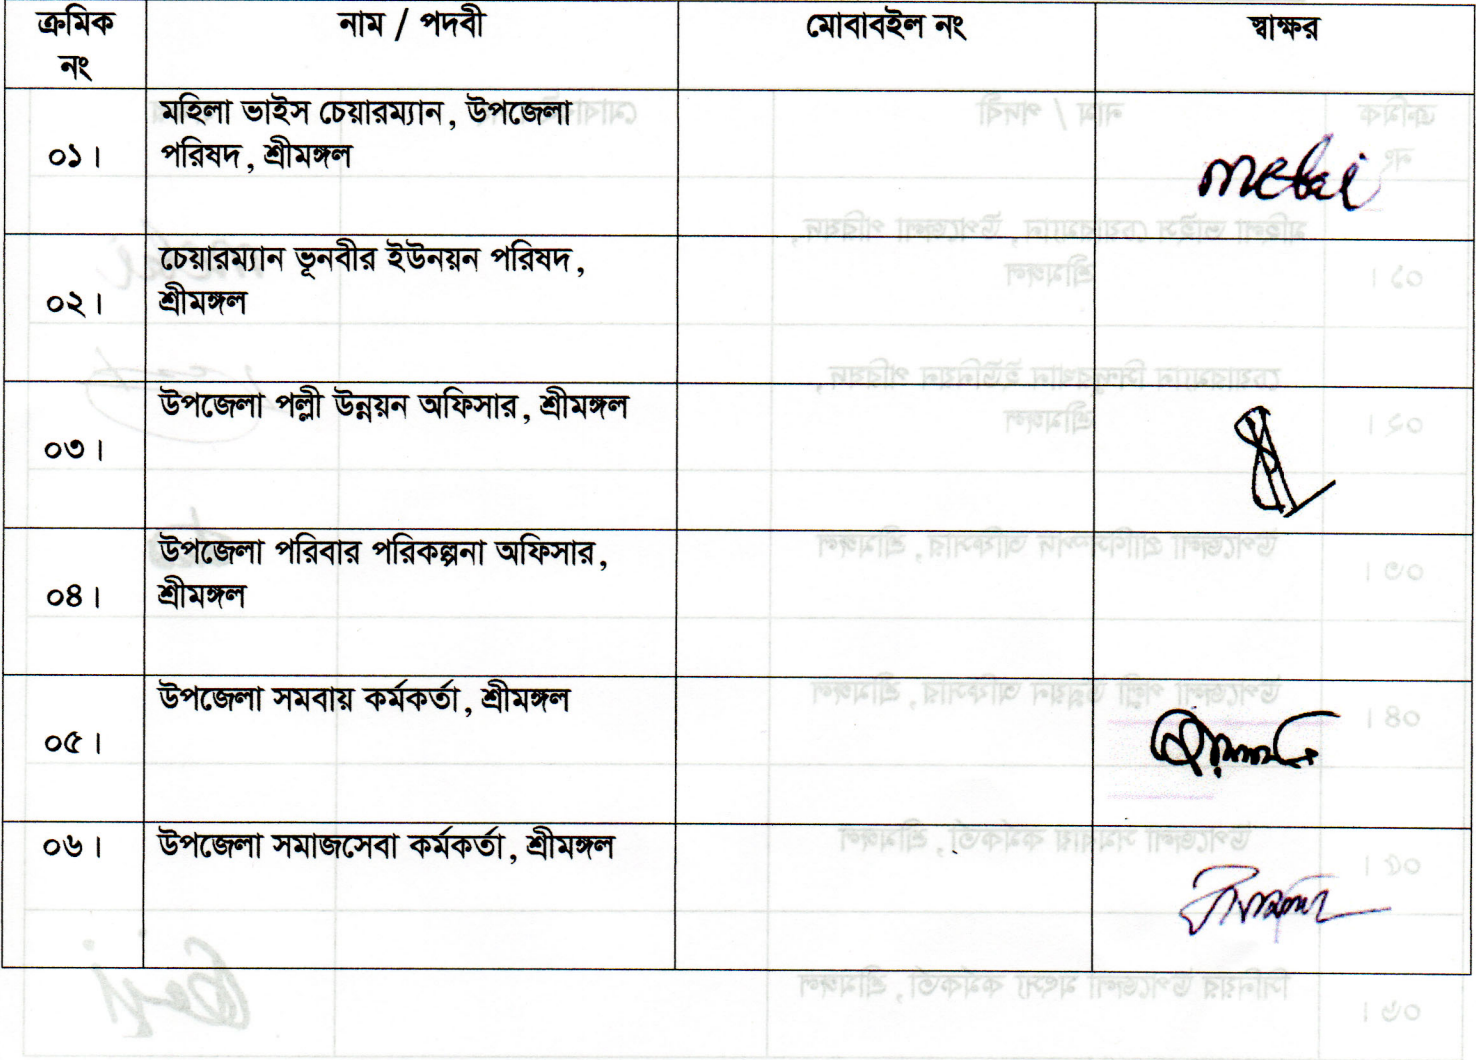 ক্রমিক নং	নাম / পদবী	মোবাবইল নং	স্বাক্ষর
০১। মহিলা ভাইস চেয়ারম্যান, উপজেলা
পরিষদ, শ্রীমঙ্গল
০২। চেয়ারম্যান ভূনবীর ইউনয়ন পরিষদ,
শ্রীমঙ্গল
০৩। উপজেলা পল্লী উন্নয়ন অফিসার, শ্রীমঙ্গল
০৪। উপজেলা পরিবার পরিকল্পনা অফিসার,
শ্রীমঙ্গল
০৫। উপজেলা সমবায় কর্মকর্তা, শ্রীমঙ্গল
০৬। উপজেলা সমাজসেবা কর্মকর্তা, শ্রীমঙ্গল